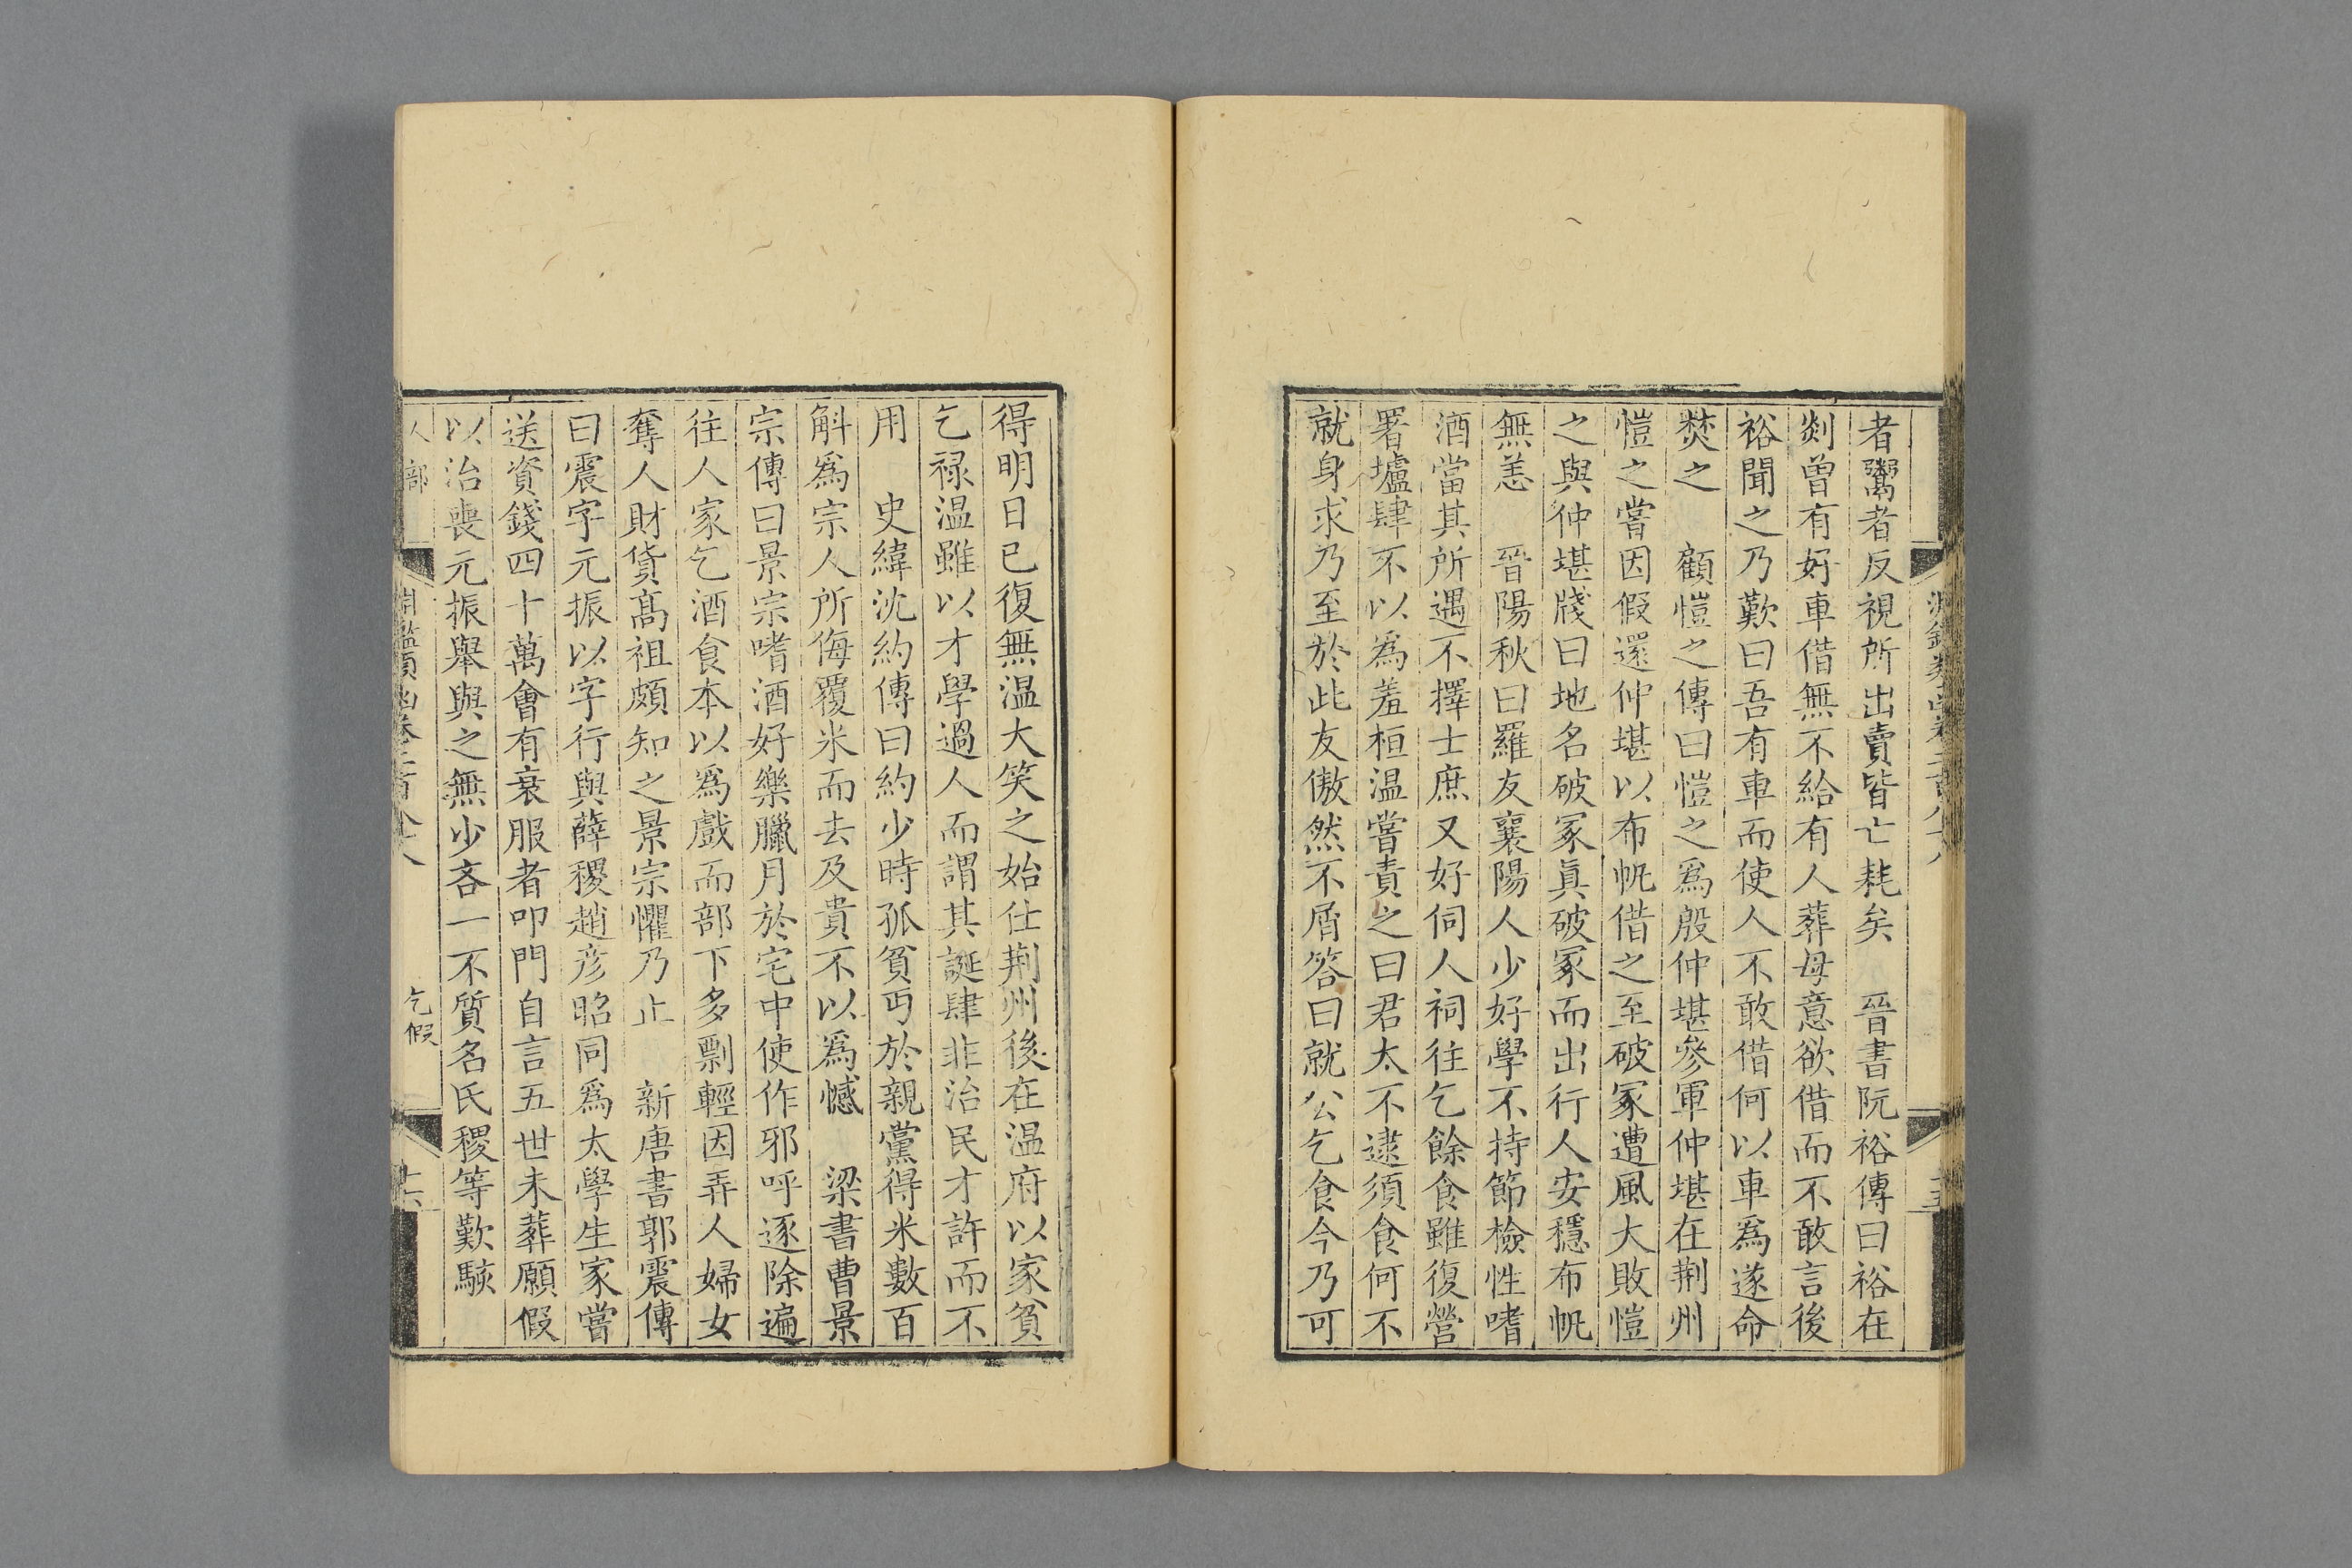 者鬻者反視所出賣皆亡耗矣　晉書阮裕傳曰裕在
剡曾有好車借無不給有人葬母意欲借而不敢言後
裕聞之乃歎曰吾有車而使人不敢借何以車爲遂命
焚之　顧愷之傳曰愷之爲殷仲堪參軍仲堪在荆州
愷之嘗因假還仲堪以布帆借之至破冢遭風大敗愷
之與仲堪牋曰地名破冢眞破冢而出行人安穩布帆
無恙　晉陽秋曰羅友襄陽人少好學不持節檢性嗜
酒當其所遇不擇士庶又好伺人祠往乞餘食雖復營
署壚肆不以爲羞桓温嘗責之曰君太不逮須食何不
就身求乃至於此友傲然不屑答曰就公乞食今乃可
得明日已復無温大笑之始仕荆州後在温府以家貧
乞禄温雖以才學遇人而謂其誕肆非治民才許而不
用　史緯沈約傳曰約少時孤貧丐於親黨得米數百
斛爲宗人所侮覆米而去及貴不以爲憾　梁書曹景
宗傳曰景宗嗜酒好樂臘月於宅中使作邪呼逐除遍
往人家乞酒食本以爲戲而部下多剽輕因弄人婦女
奪人財貨髙祖頗知之景宗懼乃止　新唐書郭震傳
曰震字元振以字行與薛稷趙彦昭同爲太學生家嘗
送資錢四十萬會有衰服者叩門自言五世未葬願假
以治喪元振舉與之無少吝一不質名氏稷等歎駭
人部
淵鑑類函卷三百八十八
乞假
十六